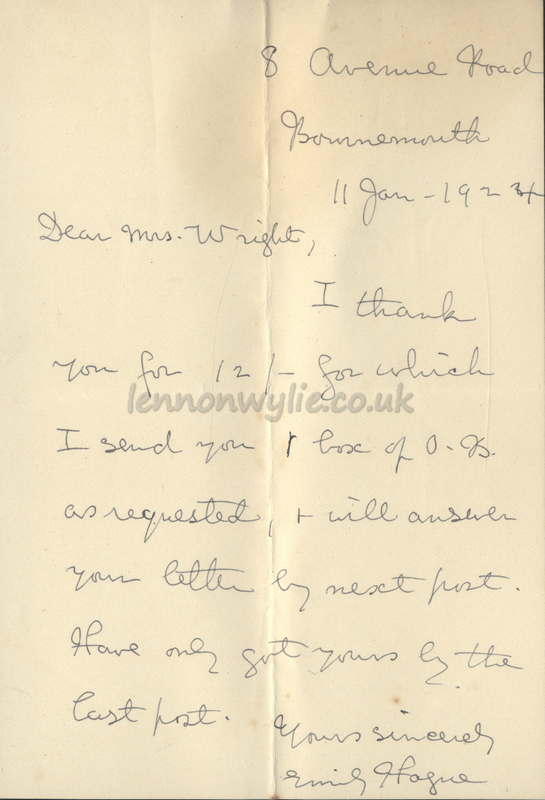 8 Avenue Road
Bournemouth
11 Jan - 1924
Dear Mrs. Wright,
I thank
you for 12/- for which
lennonwylie.co.uk
I send you 1 box of O.B.
as requested, + will answer
your letter by next post.
Have only got yours by the
last post.
Yours sincerely
Emily Hague